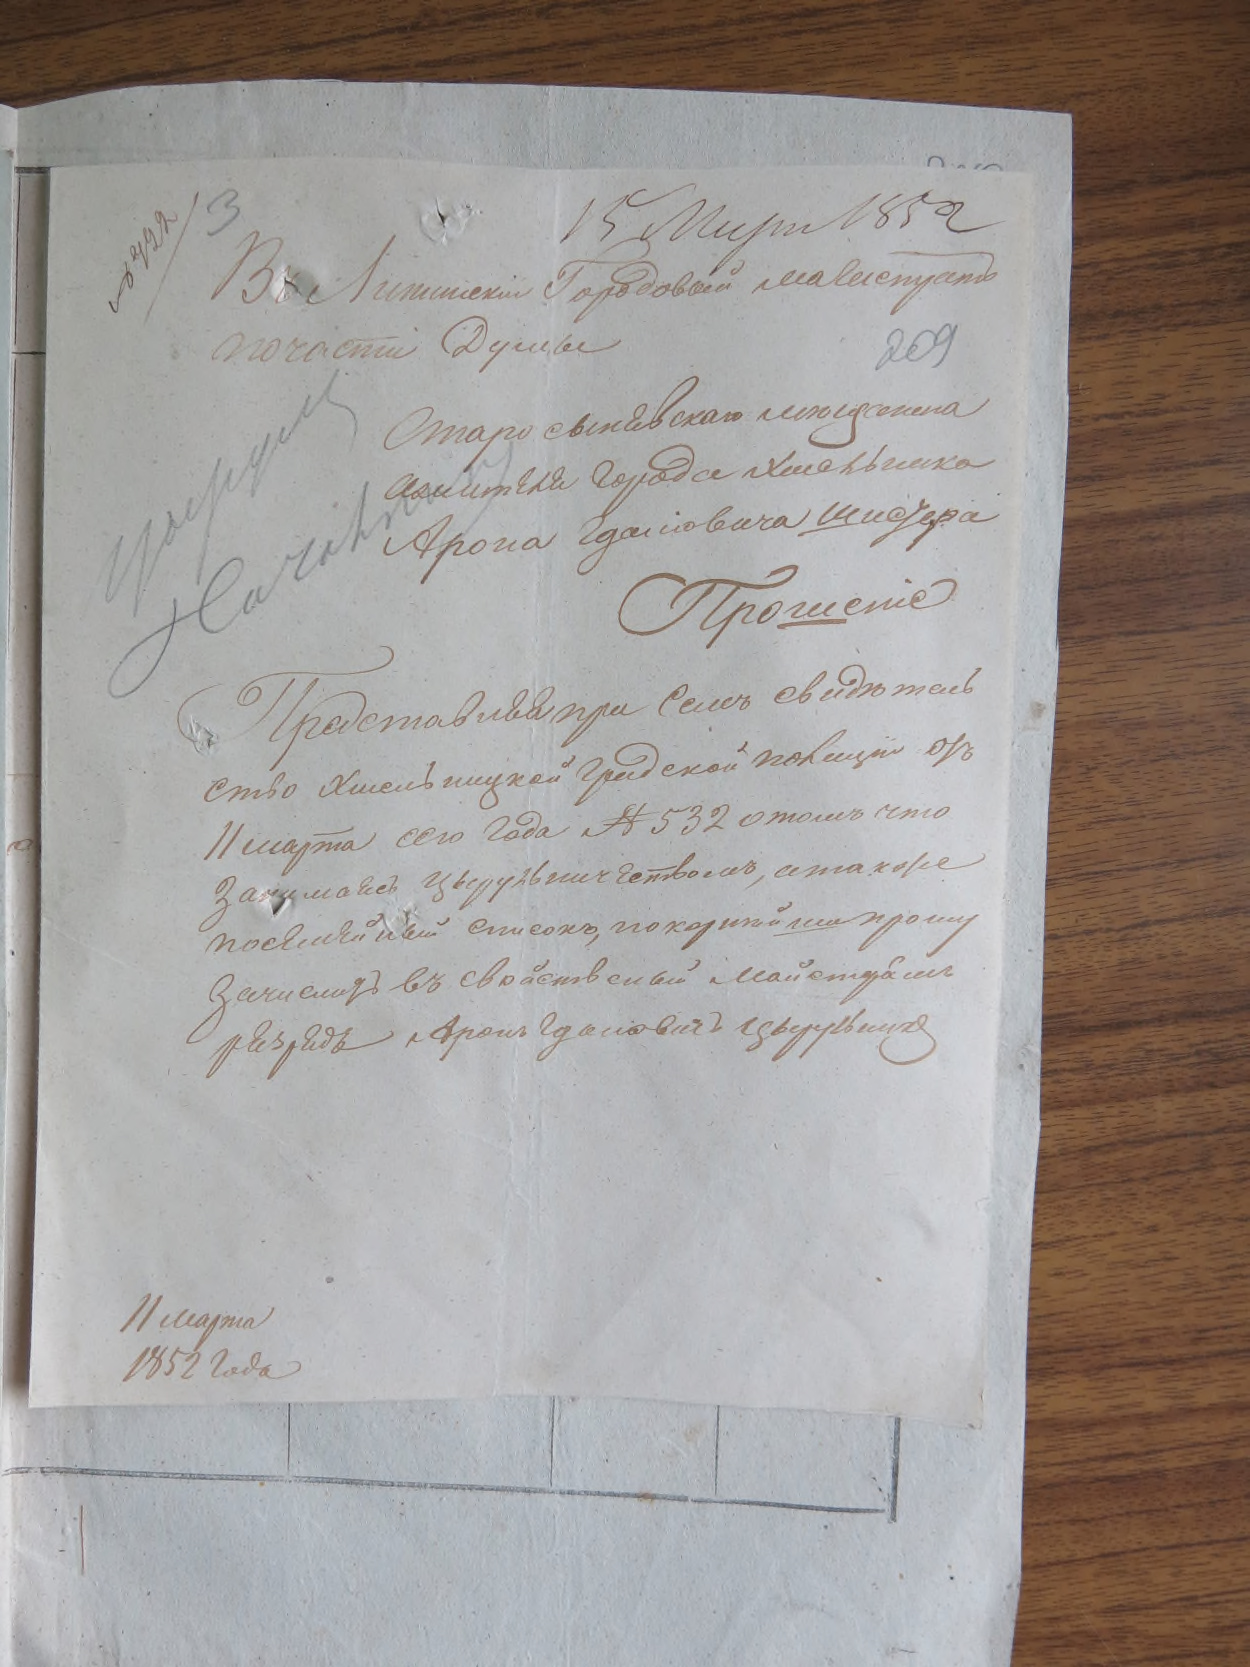 № 422 / 3
15 Март 1852
Въ Литинскій Городовой магистратъ
по части Думы
209
Старосинявскаго мещанина
жителя города Хмельника
Арона Ідаліовича
Прошеніе
Представляя при семъ свидѣтель
ство Хмельницкой градской полиціи отъ
11 марта сего года № 532 о томъ что
занимаюсь цырульничествомъ, а также
посемейный списокъ, покорнѣйше прошу
зачислить въ свойственый майстрамъ
разрядъ Аронъ Ідаліовичъ Цырульникъ
11 марта
1852 года